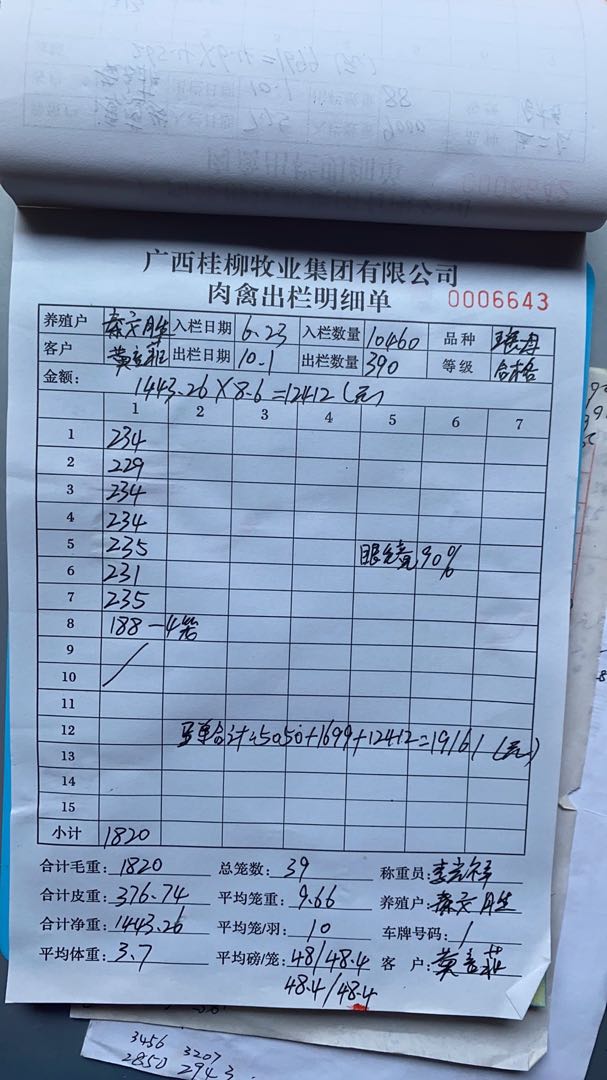 广西桂柳牧业集团有限公司
肉禽出栏明细单 0006643
养殖户 入栏日期 6.23 入栏数量 10460 品种
客户 出栏日期 10.1 出栏数量 390 等级 合格
金额: 1443.26×8.6=12412(元)
1 2 3 4 5 6 7
1 234
2 229
3 234
4 234
5 235 眼镜90%
6 231
7 235
8 188-4笼
9
10
11
12 单合计:5050+1699+12412=19161(元)
13
14
15
小计 1820
合计毛重: 1820 总笼数: 39 称重员:
合计皮重: 376.74 平均笼重: 9.66 养殖户:
合计净重: 1443.26 平均笼/羽: 10 车牌号码: 1
平均体重: 3.7 平均磅/笼: 48/48.4 客户:
48.4/48.4
3456 3207
2850 2943